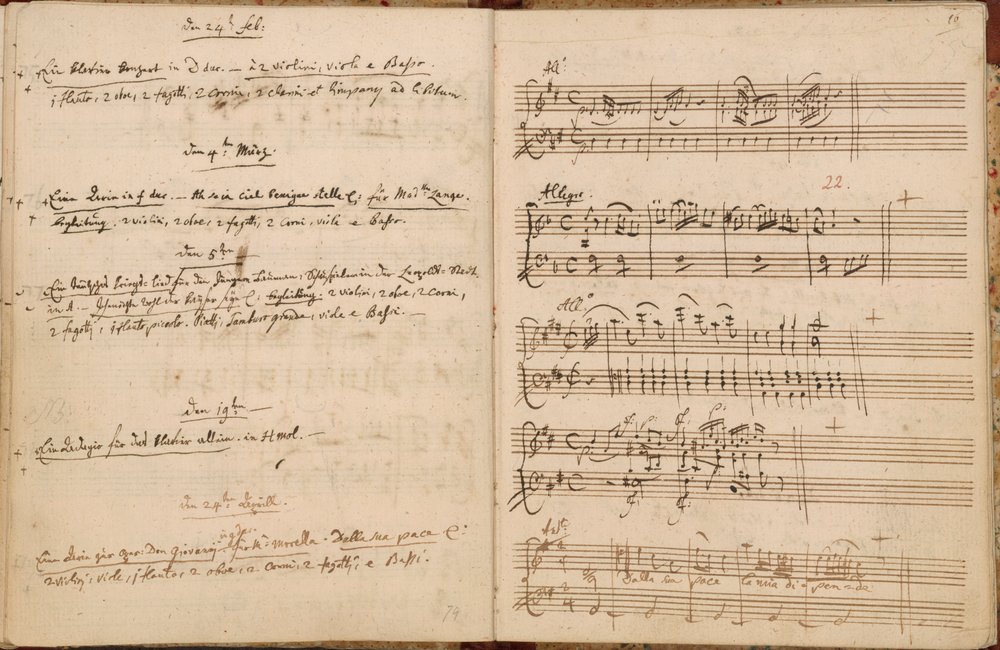 Den 24t feb:
Ein klavier konzert in D dur. — à 2 violini, viola e Basso.
1 flauto, 2 oboe, 2 fagotti, 2 Corni, 2 clarini et timpany ad libitum.
den 4t: März.
Eine Arie in f dur. — Ah se in ciel benigne stelle Etc: für Mad:me Lange.
begleitung. 2 violini, 2 oboe, 2 fagotti, 2 Corni, viola e Basso.
den 5ten
Ein teutsches kriegs-lied für den Jungern Bauman: Schauspieler in der Leopold-Stadt.
in A. — Ich möchte wohl der kayser seyn Etc: begleitung. 2 violini, 2 oboe, 2 Corni,
2 fagotti, 1 flauto piccolo. Piatti, Tamburo grande, viole e Bassi. —
den 19ten —
Ein Adagio für das klavier allein. in H mol. —
den 24ten Aprill.
Eine Arie zur oper: Don Giovanni für Mr: Morella. Dalla sua pace Etc:
2 violini, viole, 1 flauto, 2 oboe, 2 Corni, 2 fagotti, e Bassi.
79
10
Allo:
22.
Allegro
Allo:
p:
sf: p: sf: p:
sf: sf:
Andte
Dalla sua pace la mia dipende